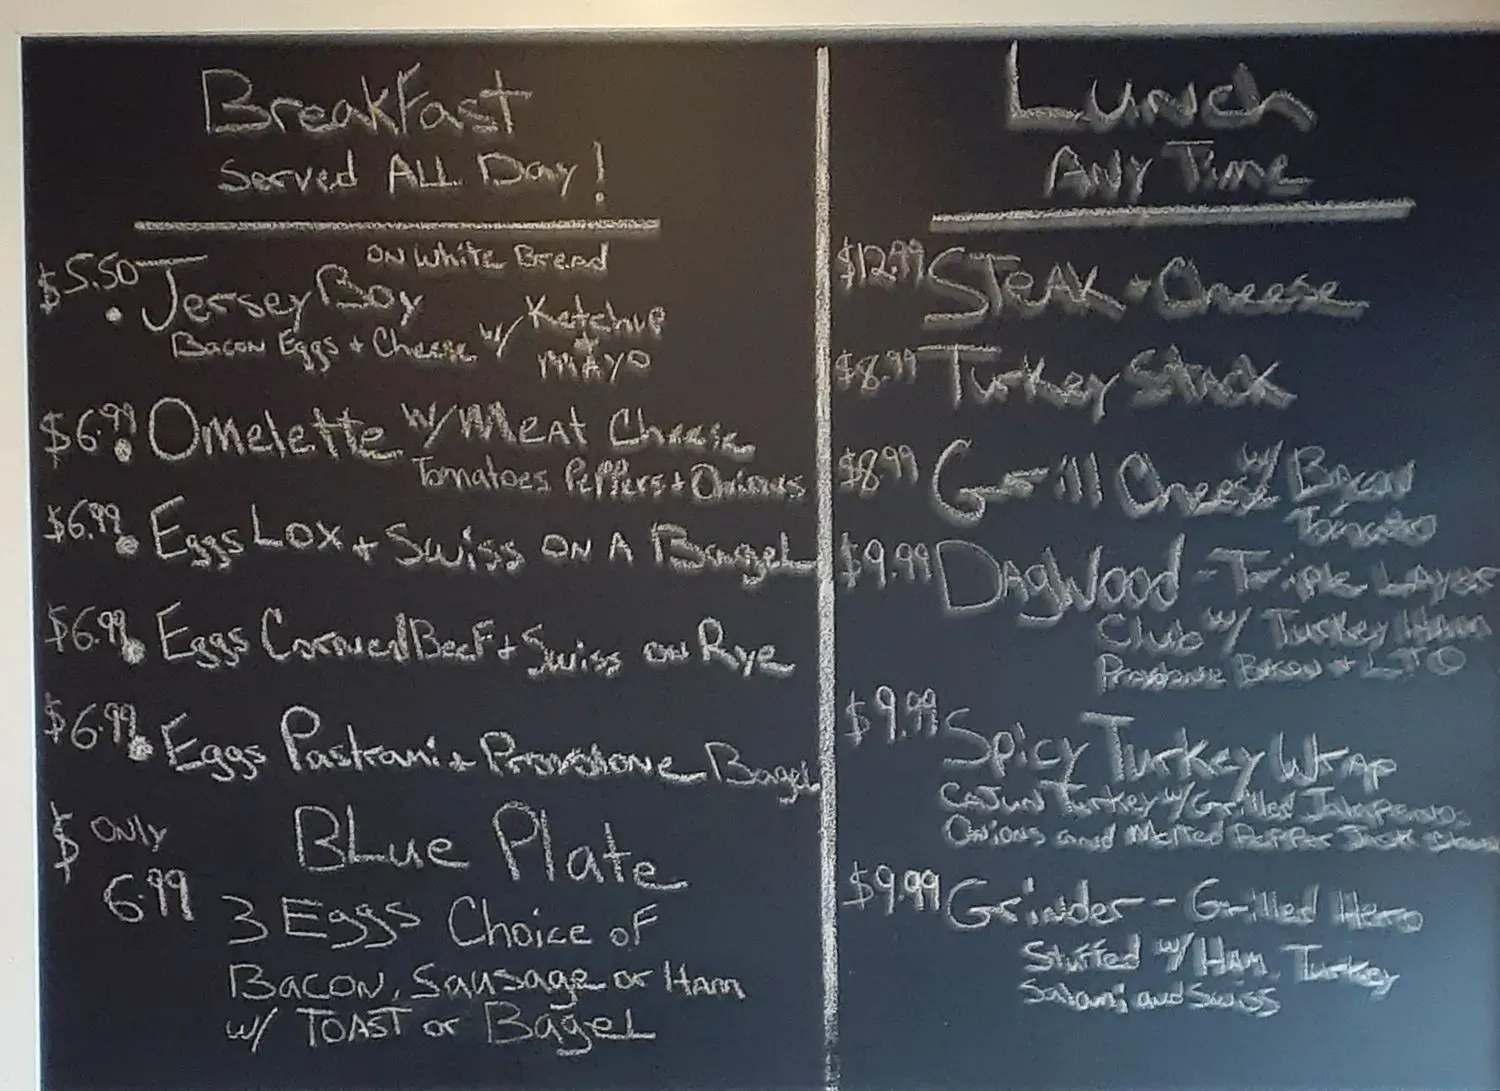 Breakfast
Served ALL Day!
$5.50 Jersey Boy ON White Bread
Bacon Eggs + Cheese w/ Ketchup + MAYO
$6.99 Omelette w/ MEAT Cheese
Tomatoes Peppers + Onions
$6.99 Eggs LOX + Swiss ON A Bagel
$6.99 Eggs Corned Beef + Swiss on Rye
$6.99 Eggs Pastrami + Provolone Bagel
$ ONLY 6.99 BLue Plate
3 Eggs Choice of
BACON, Sausage or Ham
w/ TOAST or Bagel
Lunch
ANY TIME
$12.99 STEAK + Cheese
$8.99 Turkey Stack
$8.99 Grill Cheese w/ Bacon
Tomato
$9.99 DAgWood - Triple Layer
Club w/ Turkey Ham
Provolone Bacon + LTO
$9.99 Spicy Turkey Wrap
Cajun Turkey w/ Grilled Jalapenos
Onions and Melted Pepper Jack
$9.99 Grinder - Grilled Hero
Stuffed w/ HAM, Turkey
Salami and Swiss